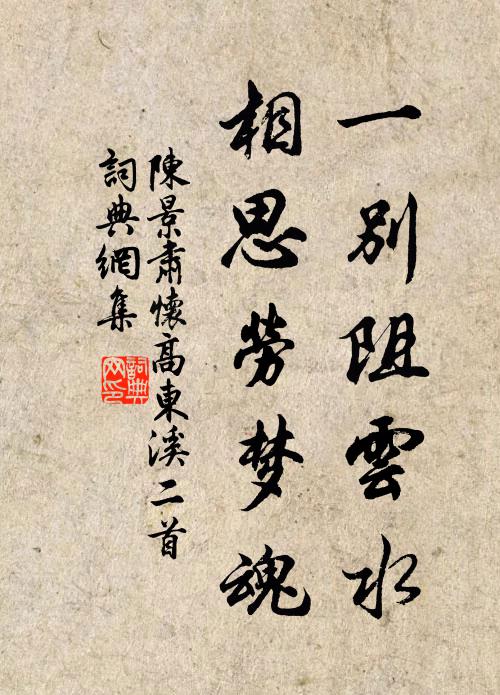 一别阻雲水
相思劳梦魂
陳景肅懷高東溪二首
詞典網集
詞典
网印